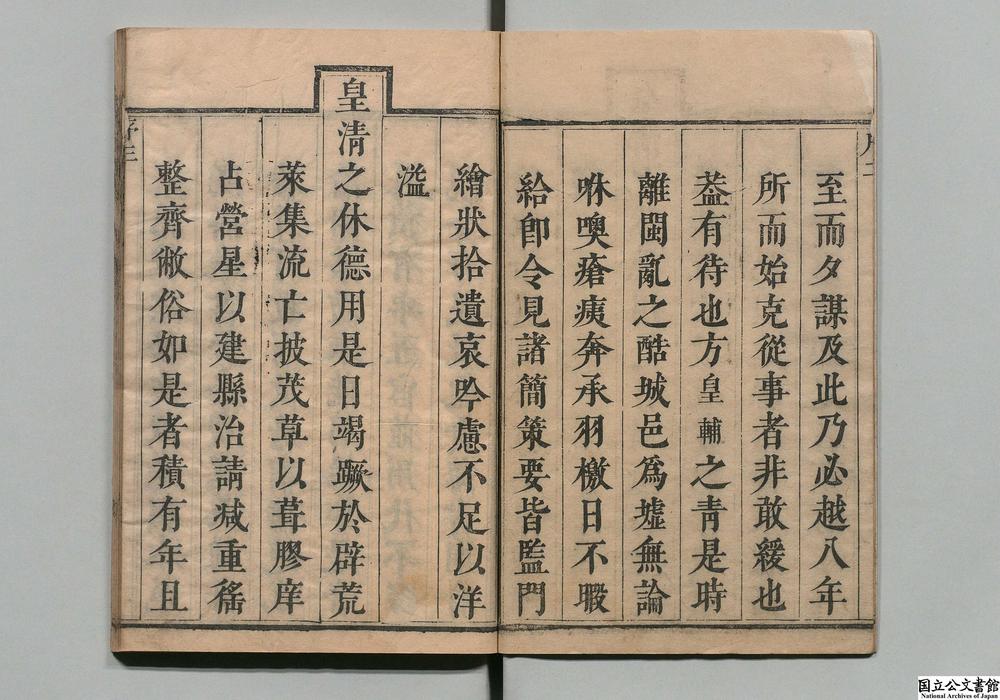 至而夕謀及此乃必越八年
所而始克從事者非敢緩也
葢有待也方皇輔之青是時
離閩亂之酷城邑爲墟無論
咻噢瘡痍奔承羽檄日不暇
給卽令見諸簡策要皆監門
繪狀拾遺哀吟慮不足以洋
溢
皇清之休德用是日竭蹶於辟荒
萊集流亡披茂草以葺膠庠
占營星以建縣治請減重徭
整齊敝俗如是者積有年且
序三
国立公文書館
National Archives of Japan